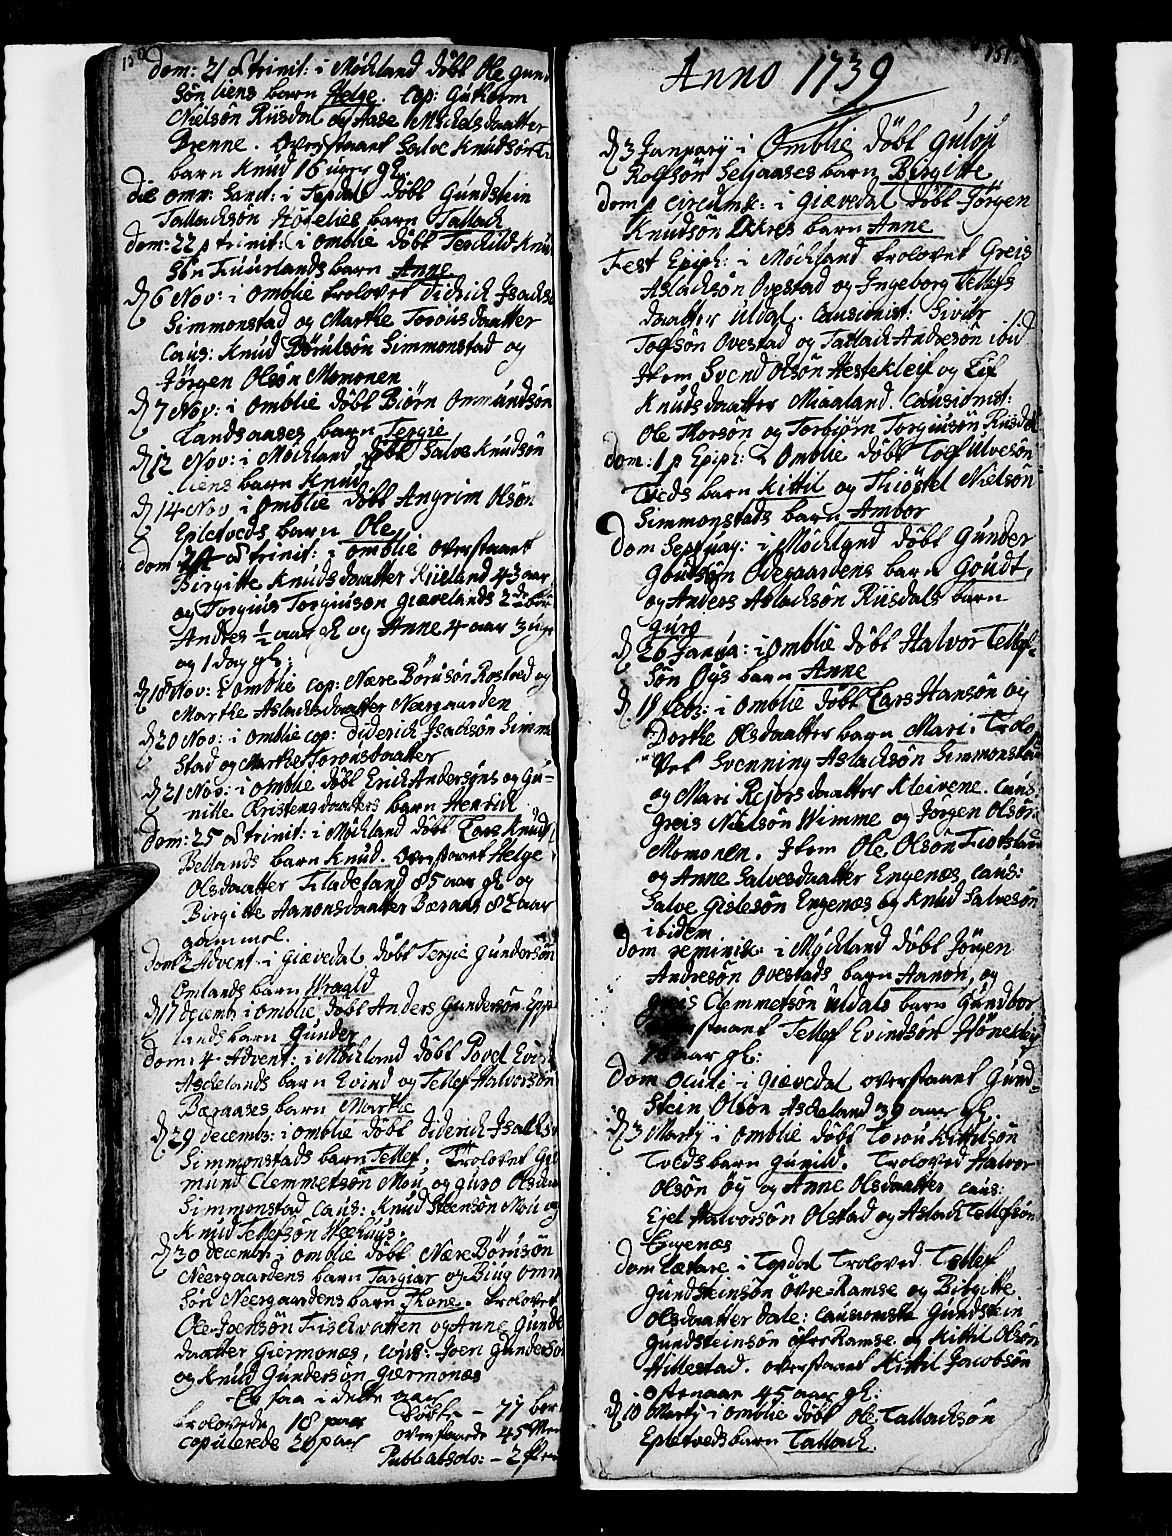 150
Dom: 21 p trinit: i Møchland døbt Ole Gund
søn Liens barn Helge. Cop: Guthorm
Nielsøn Riisdal og Aase Michelsdaatter
Brenne. Overstaaet Salve Knudsøn
barn Knud 16 uger gl.
Die omn: Sanct: i Topdal døbt Gundstein
Tallachsøn barn Tallach
Dom: 22 p trinit: i Omblie døbt Terchild Knud
søn Fuurlands barn Anne
D 6 Nov: i Omblie trolovet Didrich Isachsø
Simmonstad og Marthe Torousdaatter
Caus: Knud Børulsøn Simmonstad og
Jørgen Olsøn Momonen
D 7 Nov: i Omblie døbt Biørn Ommundsøn
Landsaases barn Tergie
D 12 Nov: i Møchland døbt Salve Knudsøn
Liens barn Knud
D 14 Nov i Omblie døbt Angrim Olsøn
Epletveds barn Ole
Dom 24 p trinit: i Omblie overstaaet
Birgitte Knudsdaatter Kiieland 43 aar
og Torgius Torgiusøn Giævelands 2de bør
Andres 1/2 aar gl og Anne 4 aar 3 uge
og 1 dag gl:
D 18 Nov: i Omblie cop: Nære Børusøn Rostved og
Marthe Aslachsdaatter Neergaarden
D 20 Nov: i Omblie cop: Diderich Isachsøn Simmo
stad og Marthe Torousdaatter
D 21 Nov: i Omblie døbt Erich Andersøns og Gu-
nille Christensdaatters barn Henrich
Dom: 25 p trinit: i Møchland døbt Lars Knuds
Betlands barn Knud. Overstaaet Helge
Olsdaatter Tiladeland 85 aar gl og
Birgitte Aanonsdaatter Bæraas 82 aar
gammel.
Dom 2 Advent i Giævedal døbt Tergie Gundersøn
Omlands barn Wraald
D 17 decemb i Omblie døbt Anders Gundersøn Eppe
lands barn Gunder
Dom: 4 Advent: i Møchland døbt Povel Evin
Aschelands barn Evind og Tellef Halvorsøn
Bæraases barn Marthe
D 29 decemb: i Omblie døbt Diderich Isachsø
Simmonstads barn Tellef. Trolovet Gu
mund Clemmetsøn Mou og Guro Olsdaa
Simmonstad Caus: Knud Steensøn Mou og
Knud Tellefsøn Wæhuus.
D 30 decemb i Omblie døbt Nære Børusøn
Neergaardens barn Targiær og Biug Omm
søn Neergaardens barn Thone. Trolovet
Ole Joensøn Fischvatten og Anne Gunde
daatter Giermonæs, caus: Joen Gundersø
og Knud Gundersøn Giermonæs
Er saa i dette aar
trolovede 18 paar Døbte - 77 bør
copulerede 20 paar overstaaede 45 Men
Publ absolv: - 2

151
Anno 1739
D 3 January i Omblie døbt Gulov
Rolfsøn Selaases barn Birgitte
Dom p circumc: i Giævedal døbt Jørgen
Knudsøn Okres barn Anne
Fest Epiph: i Møchland trolovet Greis
Aslachsøn Ovestad og Ingeborg Tellefs
daatter Uldal. Causionist: Sivur
Tofsøn Ovestad og Tallach Andresøn ibid
Item Svend Olsøn Hestekleif og Lif
Knudsdaatter Miaaland. Causionist:
Ole Thorsøn og Torbiørn Torgiusøn Riisdal
Dom: 1 p Epiph: i Omblie døbt Tof Ulvesøn
Tveds barn Kittil og Thiøstel Nielsøn
Simmonstads barn Ambor
Dom Septuag: i Møchland døbt Gunder
Goudsøn Ødegaardens barn Goudt,
og Anders Aslachsøn Riisdals barn
Guro
D 26 Janua: i Omblie døbt Halvor Tellef-
søn Øys barn Anne
D 18 Feb: i Omblie døbt Lars Hansøn og
Dorthe Olsdaatter barn Mari. Trolo-
vet Svenning Aslachsøn Simmonstad
og Mari Rejersdaatter Kleivene. Caus:
Greis Nielsøn Wimme og Jørgen Olsøn
Momonen. Item Ole Olsøn Tiotstad
og Anne Salvesdaatter Engenæs, caus:
Salve Gislesøn Engenæs og Knud Salvesøn
ibidem
Dom reminisc i Møchland døbt Jørgen
Andresøn Ovestads barn Aanon, og
Greis Clemmetsøn Uldals barn Gundbor
overstaaet Tellef Evindsøn Hønekleiv
76 aar gl:
Dom oculi i Giævedal overstaaet Gund-
stein Olsøn Ascheland 39 aar gl.
D 3 Marty i Omblie døbt Torou Kittelsøn
Tveds barn Gunild. Troloved Halvor
Olsøn Øy og Anne Olsdaatter caus:
Ejel Halvorsøn Olstad og Aslach Tellefsøn
Engenæs
Dom lætare i Topdal Troloved Tellef
Gundsteinsøn Øvre-Ramse og Birgitte
Olsdaatter Dale: causionister Gundstein
Gundsteinsøn øfre Ramse og Kittil Olsøn
Hillestad. Overstaaet Kittil Jacobsøn
Oftenaar 45 aar gl:
D 10 Marty i Omblie døbt Ole Tallachsøn
Epletveds barn Tallach.